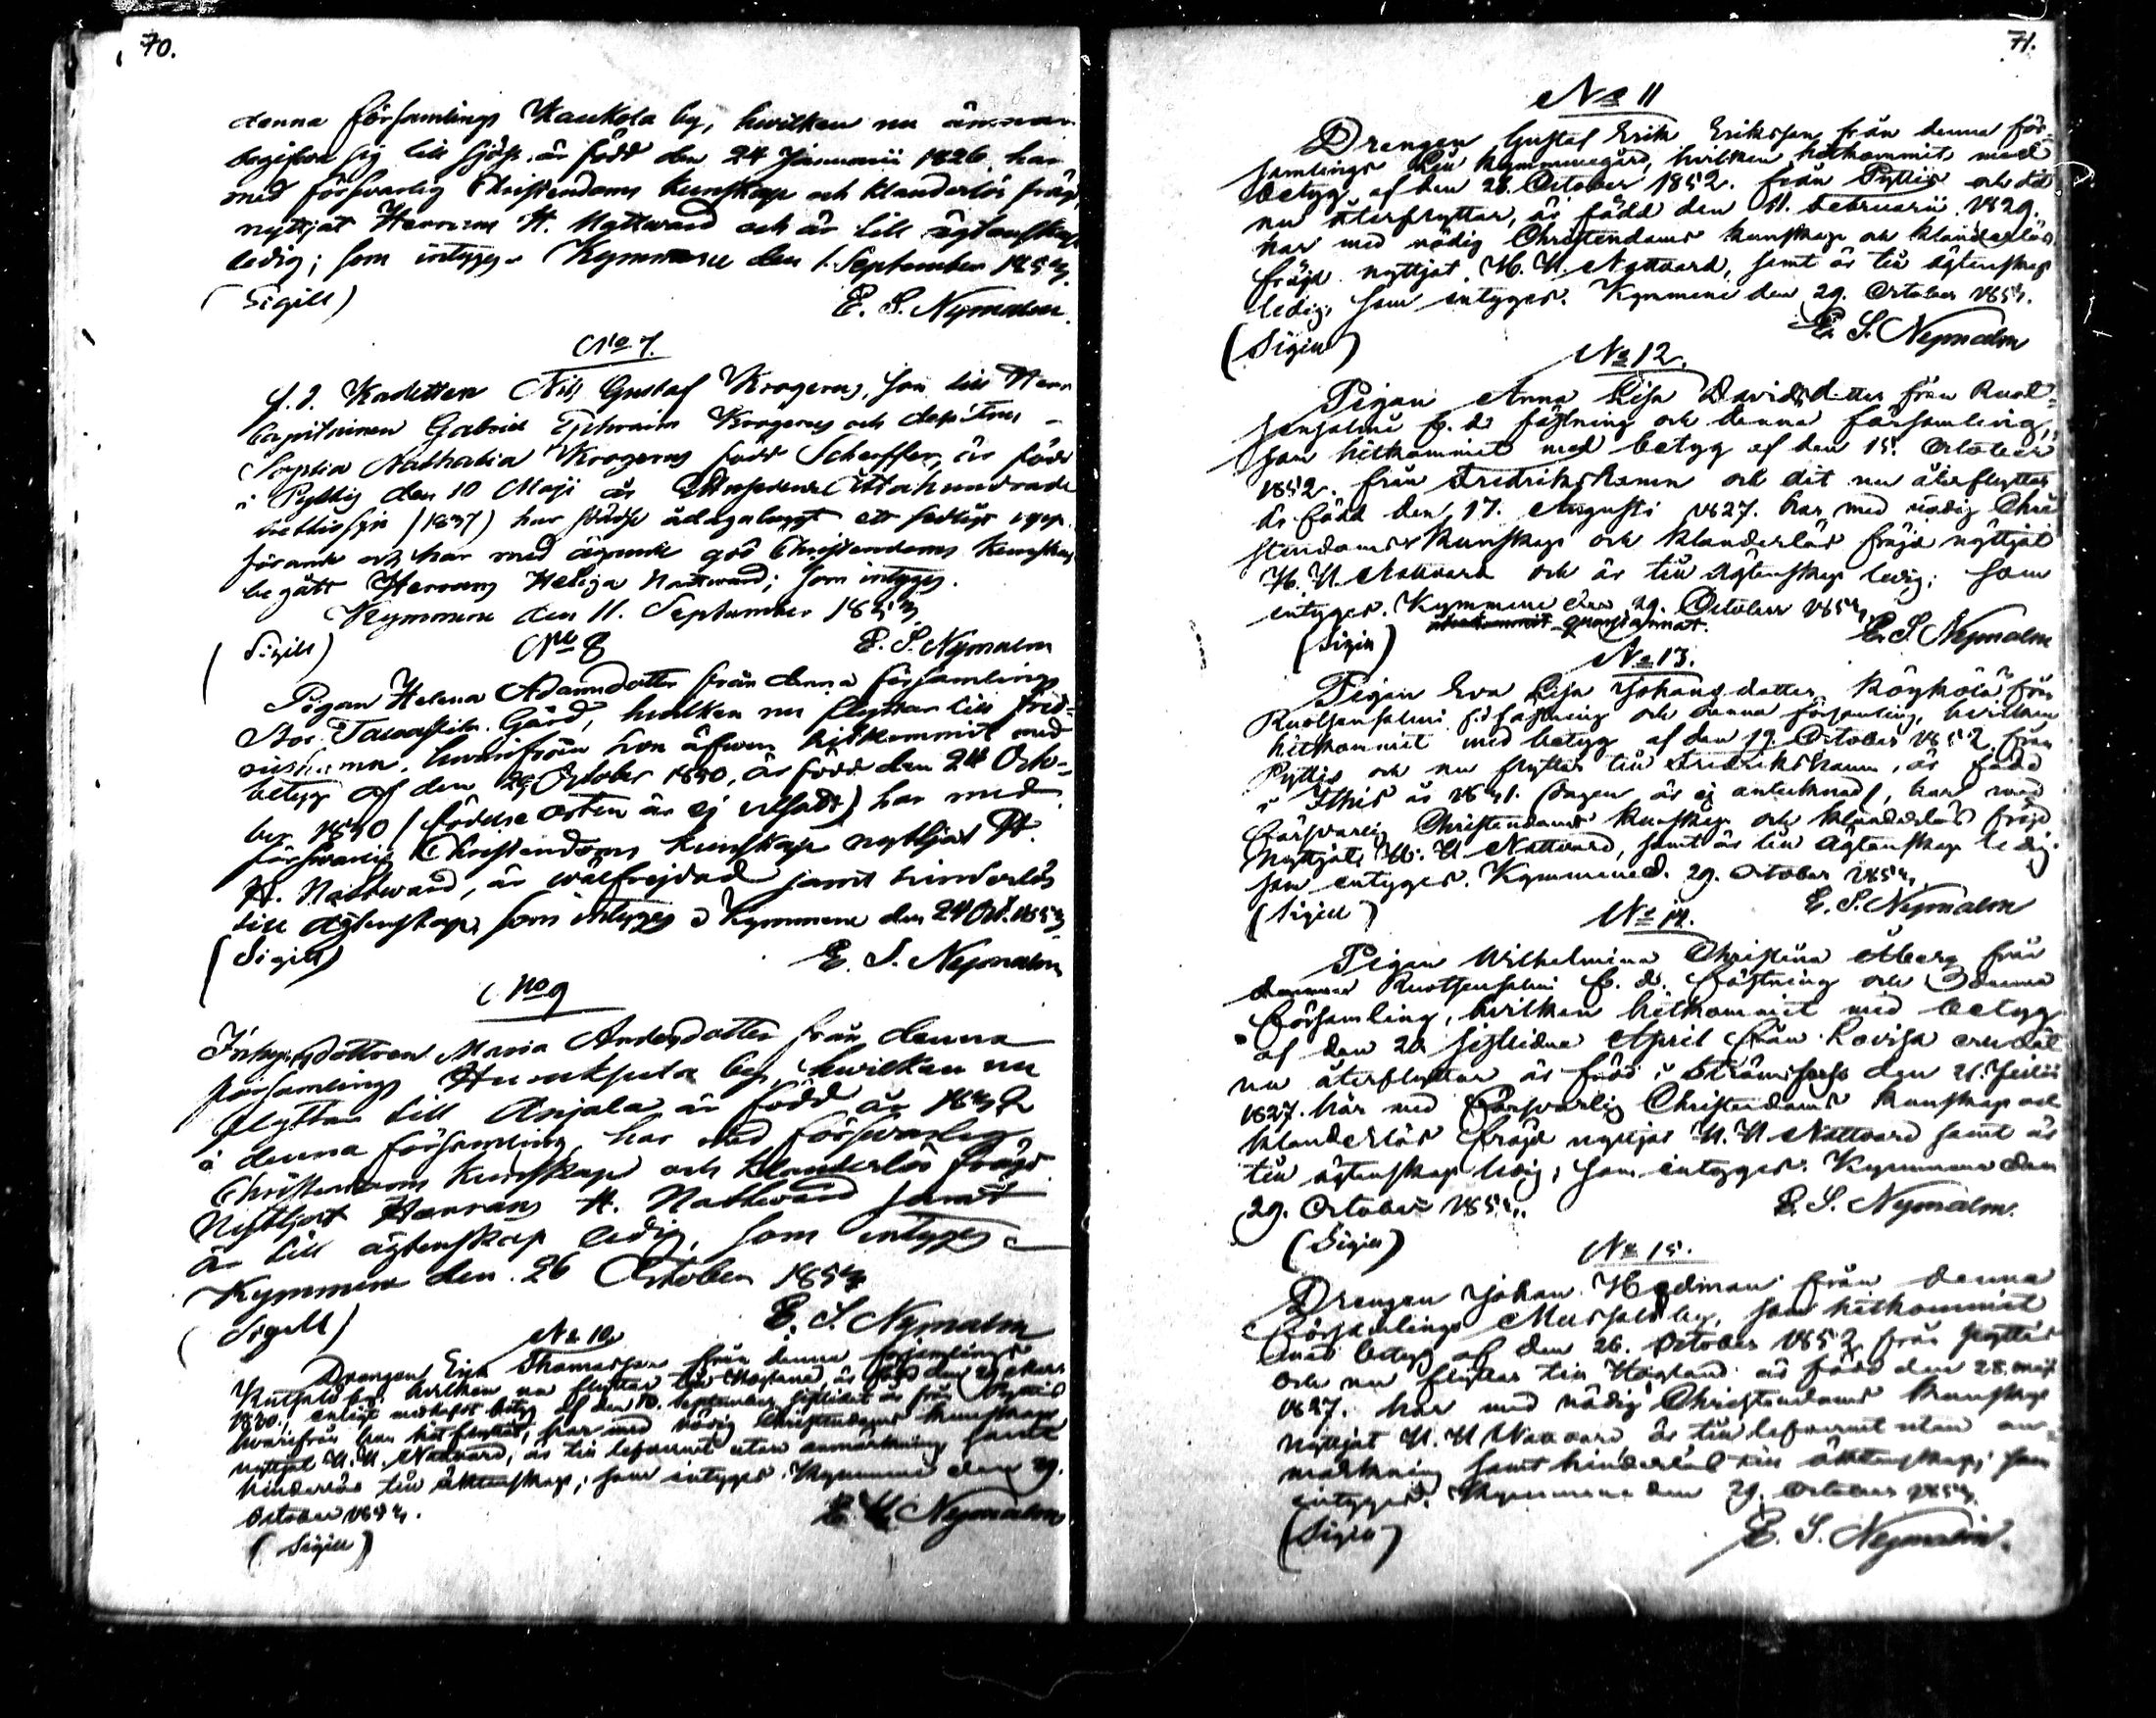 70.
denna församlings Kaukola by, hwilken nu ämnar
begifva sig till sjöss, är född den 24 Januarii 1826, har
med försvarlig Christendoms kunskap och klanderlös fräjd
nyttjat Herrans H. Nattward och är till ägtenskap
ledig; som intygas Kymmene den 1. September 1853.
(Sigill) E. S. Nymalm.
No 7.
f. d. Kadetten Nils Gustaf Krogerus, son till Herr
Capitainen Gabriel Ephraim Krogerus och dess Fru
Sophia Nathalia Krogerus född Scherffer, är född
i Pyttis den 10 Maji år Ettusende Åttahundrade
(1837) har städse ådagalaggt ett sedligt upp-
förande och har med ägande god Christendoms kunskap
begått Herrans Heliga Nattward; som intygas.
Kymmene den 11. September 1853
(Sigill) E. S. Nymalm
No 8
Pigan Helena Adamsdotter från denna församlings
Gård, hwilken nu flyttar till Fred-
rikshamn, hwarifrån hon äfwen hitkommit med
betyg af den 29 October 1850, är född den 24 Octo-
ber 1830 (födelse orten är ej utsatt) har med
försvarlig Christendoms kunskap nyttjat H.
H. Nattward, är wälfrejdad samt hinderlös
till ägtenskap, som intygas Kymmene den 24 Oct. 1853
(Sigill) E. S. Nymalm
No 9
Maria Andersdotter från denna
församlings by, hwilken nu
flyttar till Anjala är född år 1832
i denna församling, har med försvarlig
Christendoms kunskap och klanderlös fräjd
Nyttjat Herrans H. Nattward samt
är till ägtenskap ledig, som intygas
Kymmene den 26 October 1853
(Sigill) E. S. Nymalm
No 10.
Drengen Erik Thomasson från denna församlings
by, hvilken nu flyttar till Högland, är född den 29
1830, enligt medhaft betyg af den 10. September sistledet år från Pyttis
hvarifrån han hitflyttat, har med nödig Christendoms kunskap
nyttjat H. H. Nattvard, är till lefvernet utan anmärkning samt
hinderlös till äktenskap; som intygas. Kymmene den 29.
October 1853.
E. S. Nymalm
(Sigill)
71.
No 11
Drengen Gustaf Erik Eriksson från denna för-
samlings Kymmenegård, hvilken hitkommit med
betyg af den 28. October 1852. från Pyttis och dit
nu återflyttar, är född den 11. Februarii 1829.
har med nödig Christendoms kunskap och klanderlös
fräjd nyttjat H. H. Nattvard, samt är till ägtenskap
ledig, som intygas. Kymmene den 29. October 1853.
(Sigill) E. S. Nymalm
No 12.
Pigan Anna Lisa Davidsdotter från Ruot-
sensalmi f. d. fästning och denna församling,
som hitkommit med betyg af den 15. October
1852. från Fredrikshamn och dit nu återflyttar
är född den 17. Augusti 1827. har med nödig Chri-
stendoms kunskap och klanderlös fräjd nyttjat
H. H. Nattvard och är till ägtenskap ledig; som
intygas. Kymmene den 29. October 1853
(Sigill) E. S. Nymalm
No 13.
Pigan Eva Lisa Johansdotter från
Ruotsensalmi f.d. fästning och denna församling, hvilken
hitkommit med betyg af den 19. October 1852 från
Pyttis och nu flyttar till Fredrikshamn, är född
i år 1831. (dagen är ej antecknad), har med
försvarlig Christendoms kunskap och klanderlös fräjd
nyttjat H. H. Nattvard, samt är till ägtenskap ledig
som intygas. Kymmene d. 29. October 1853.
(Sigill) E. S. Nymalm
No 14.
Pigan Wilhelmina Christina Åberg från
Ruotsensalmi f. d. fästning och denna
församling, hvilken hitkommit med betyg
af den 20 sistlidne April från Lovisa och dit
nu återflyttar är född i Strömfors den 21. Julii
1827. har med försvarlig Christendoms kunskap och
klanderlös fräjd nyttjat H. H. Nattvard samt är
till ägtenskap ledig; som intygas. Kymmene den
29. October 1853. E. S. Nymalm.
(Sigill)
No 15.
Drengen Johan Hedman från denna
församlings Mussalo by, som hitkommit
med betyg af den 26. October 1852 från Pyttis
och nu flyttar till Högland är född den 28. Maji
1827. har med nödig Christendoms kunskap
nyttjat H. H. Nattvard är till lefvernet utan an-
märkning samt hinderlös till äktenskap; som
intygas. Kymmene den 29. October 1853.
(Sigill) E. S. Nymalm.